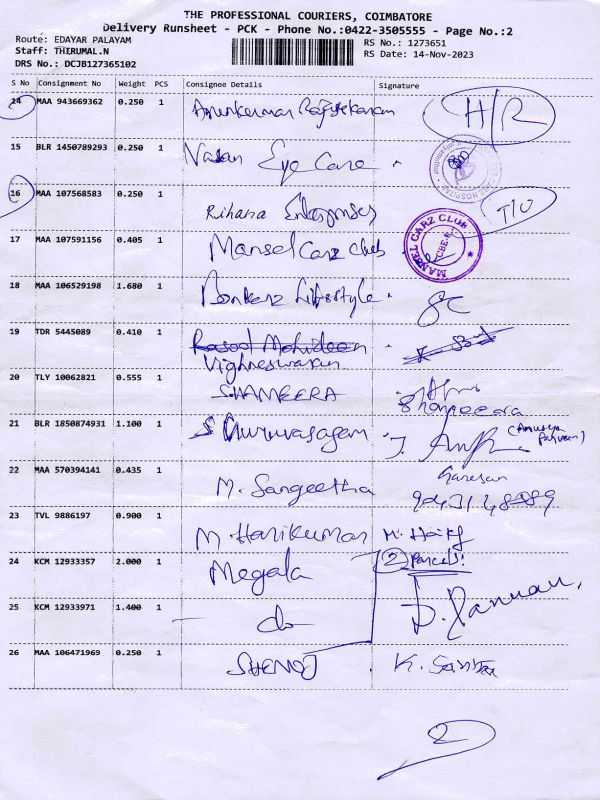 THE PROFESSIONAL COURIERS, COIMBATORE
Delivery Runsheet - PCK - Phone No.:0422-3505555 - Page No.:2
Route: EDAYAR PALAYAM
Staff: THIRUMAL.N
DRS No.: DCJB127365102
RS No.: 1273651
RS Date: 14-Nov-2023
S No Consignment No Weight PCS Consignee Details Signature
14 MAA 943669362 0.250 1 H/R
15 BLR 1450789293 0.250 1 Vasan Eye Care
16 MAA 107568583 0.250 1 Rihana Enterprises T/O
17 MAA 107591156 0.405 1 Mansel Carz Club MANSEL CARZ CLUB CBE
18 MAA 106529198 1.680 1 Bonkerz Lifestyle
19 TDR 5445089 0.410 1 Rasool Mohideen
Vighneswaran
20 TLY 10062821 0.555 1 SHAMEERA Shameera
21 BLR 1850874931 1.100 1 S Guruvasagam
22 MAA 570394141 0.435 1 M. Sangeetha Ganesan
23 TVL 9886197 0.900 1 M. Harikumar
24 KCM 12933357 2.000 1 Megala 2 Parcels!
25 KCM 12933971 1.400 1 do
26 MAA 106471969 0.250 1 SHENOJ
2